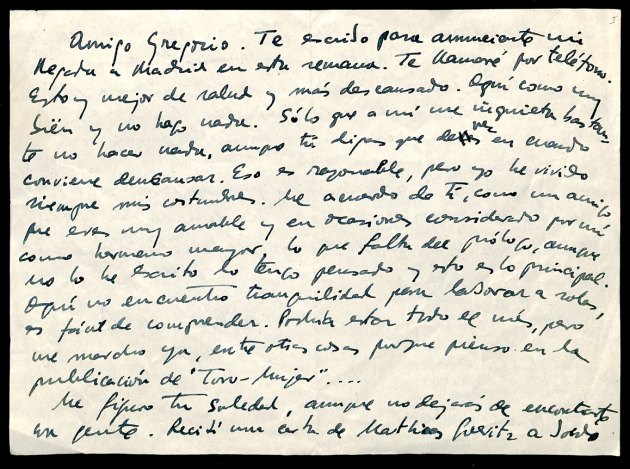 3
Amigo Gregorio. Te escribo para anunciarte mi
llegada a Madrid en esta semana. Te llamaré por teléfono.
Estoy mejor de salud y más descansado. Aquí como muy
bien y no hago nada. Sólo que a mí me inquieta bastan-
te no hacer nada, aunque tú digas que de vez en cuando
conviene descansar. Eso es razonable, pero yo he vivido
siempre mis costumbres. Me acuerdo de ti, como un amigo
que eres muy amable y en ocasiones considerado por mí
como hermano mayor, lo que falta del prólogo, aunque
no lo he escrito lo tengo pensado y esto es lo principal.
Aquí no encuentro tranquilidad para laborar a solas,
es fácil de comprender. Podría estar todo el mes, pero
me marcho ya, entre otras cosas porque pienso en la
publicación de "Toro-Mujer"....
Me figuro tu soledad, aunque no dejarás de encontrarte
con gente. Recibí una carta de Mathias Goeritz a